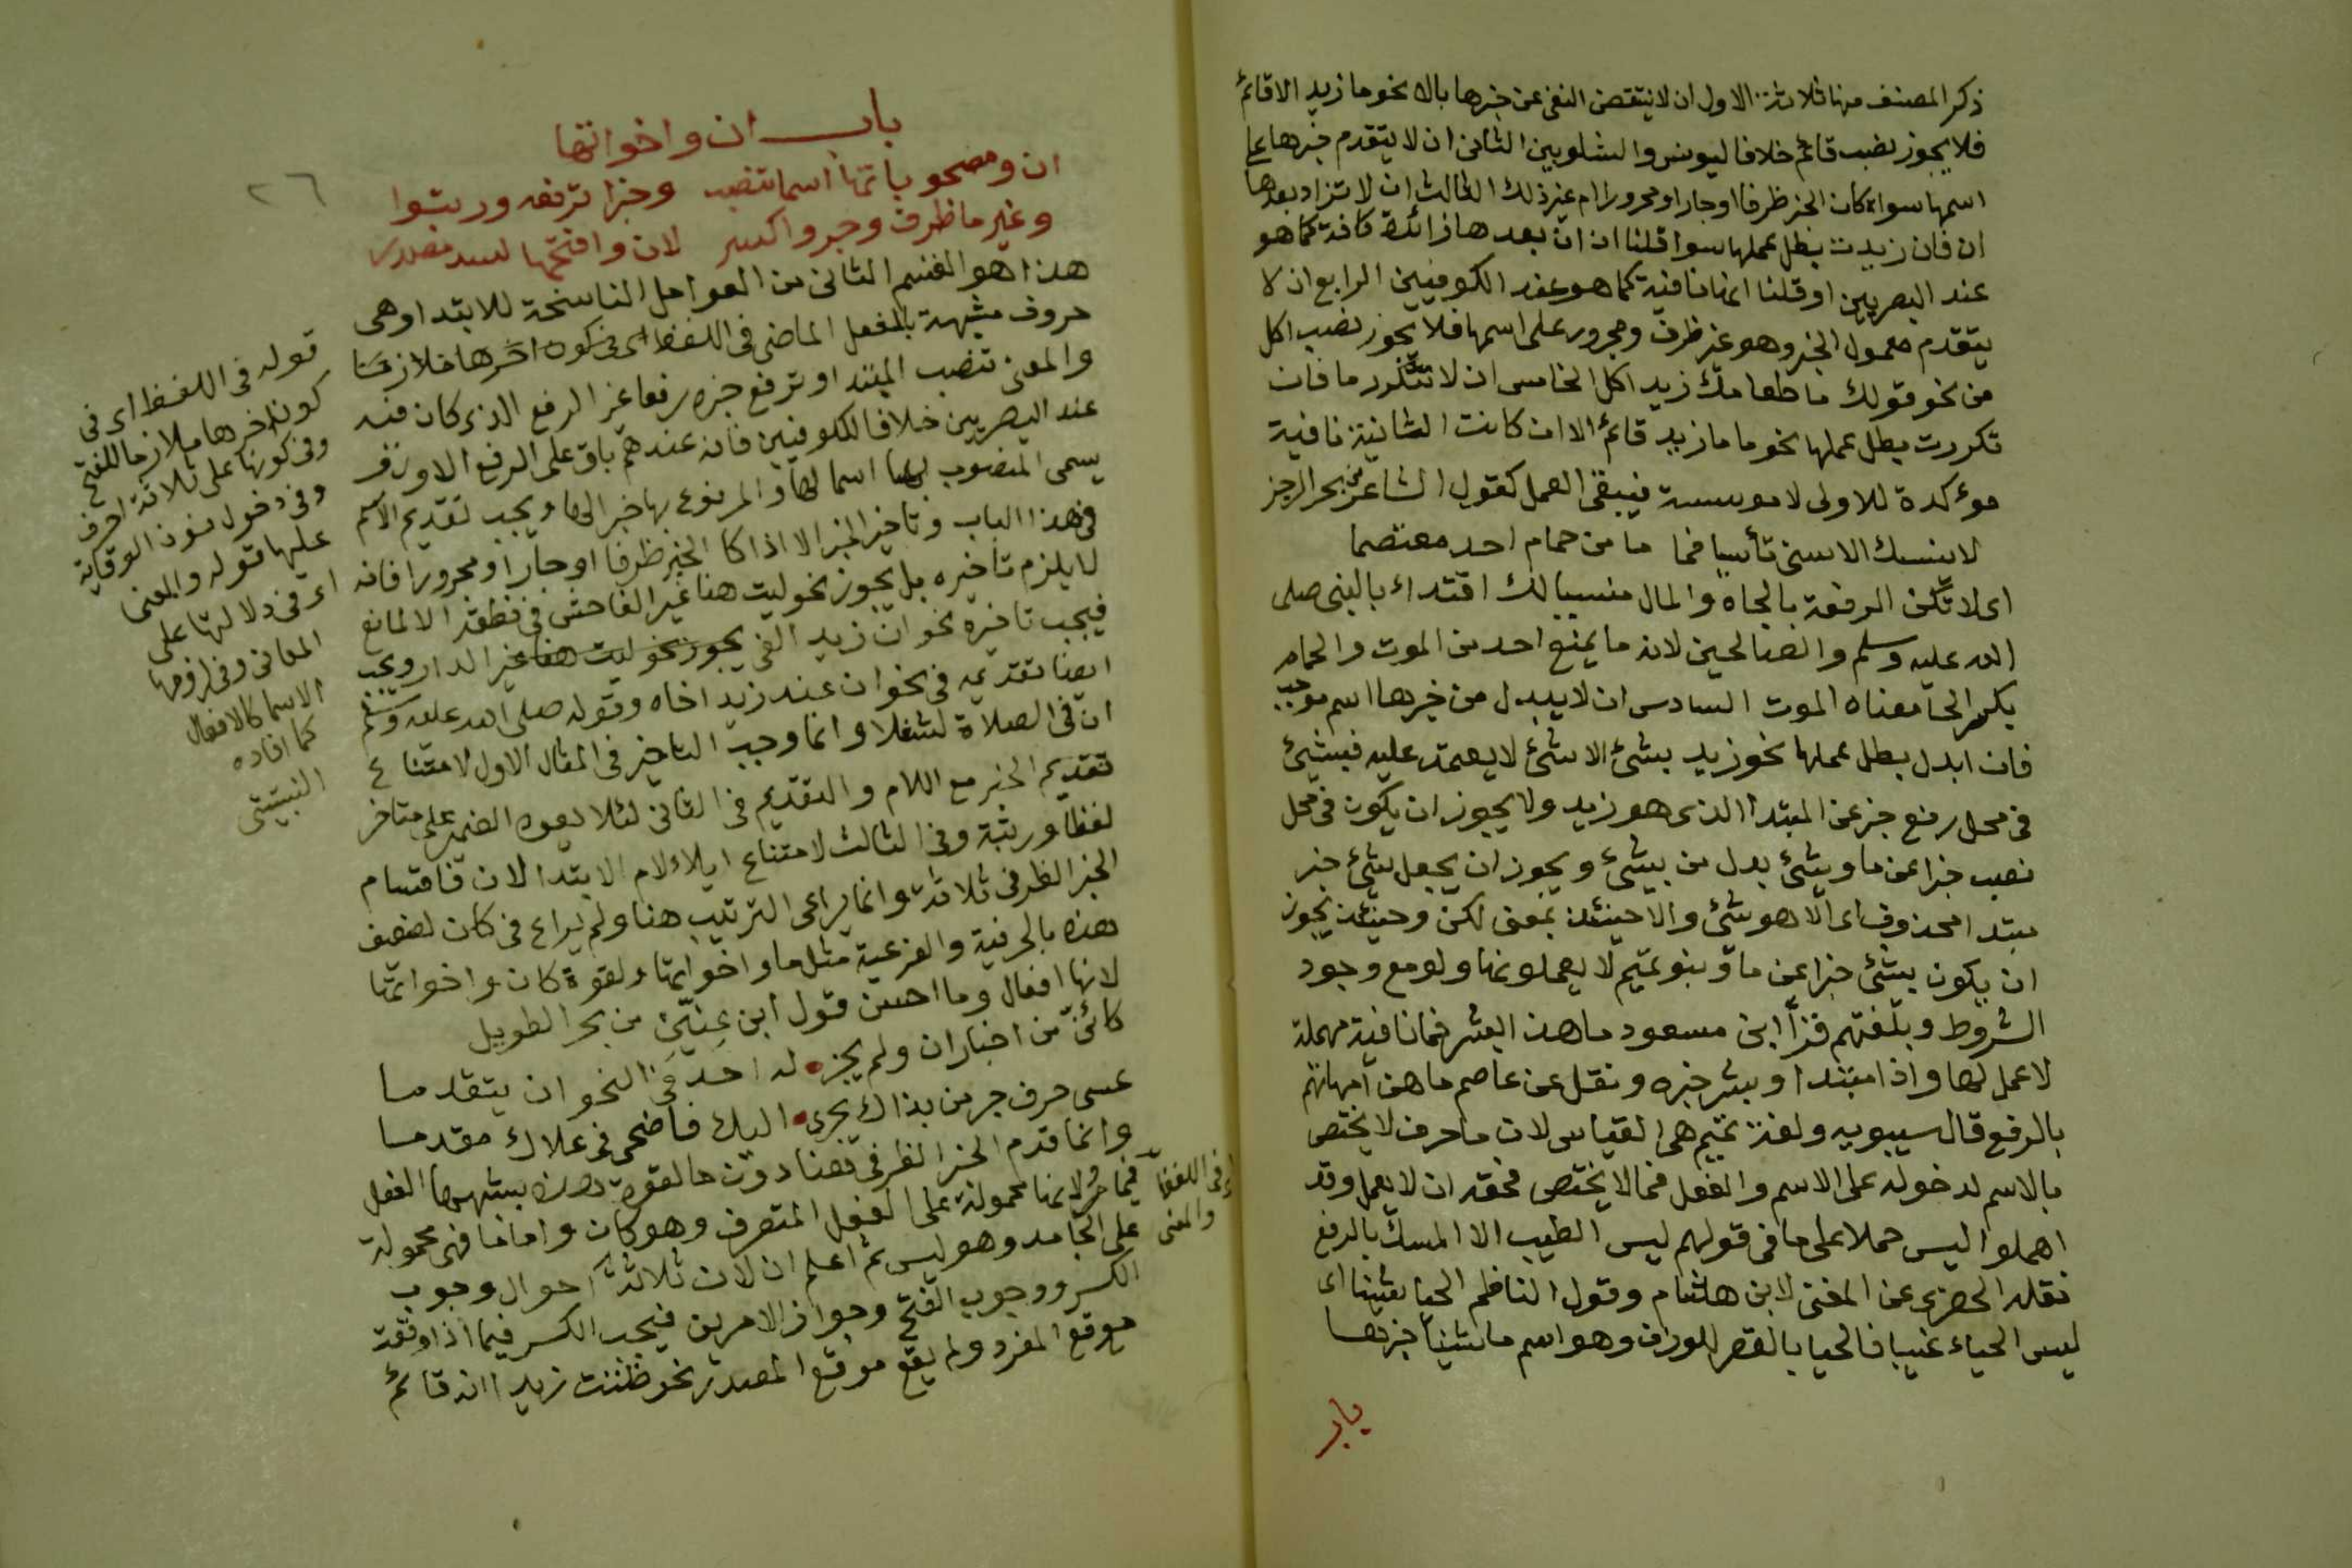 ذكر المصنف منها ثلاثة الاول ان لا ينتقض النفى عن خبرها بالا نحو ما زيد الا قائم
فلا يجوز نصب قائم خلافا ليونس والشلوبين الثانى ان لا يتقدم خبرها على
اسمها سواء كان الخبر ظرفا او جارا ومجرورا ام غير ذلك الثالث ان لا تزاد بعدها
ان فان زيدت بطل عملها سوا قلنا ان ان بعدها زائدة كافة كما هو
عند البصريين او قلنا انها نافية كما هو عند الكوفيين الرابع ان لا
يتقدم معمول الخبر وهو غير ظرف ومجرور على اسمها فلا يجوز نصب اكل
من نحو قولك ما طعامك زيد اكل الخامس ان لا تتكرر ما فان
تكررت بطل عملها نحو ما ما زيد قائم الا ان كانت الثانية نافية
موءكدة للاولى لا موسسة فيبقى العمل كقول الشاعر من بحر الرجز
لا ينسك الاسى تأسيا فما ما من حمام احد معتصما
اى لا تكن الرفعة بالجاه والمال منسيا لك اقتداء بالنبى صلى
الله عليه وسلم والصالحين لانه ما يمنع احد من الموت والحمام
بكسر الحا معناه الموت السادس ان لا يبدل من خبرها اسم موجب
فان ابدل بطل عملها نحو زيد بشئ الا شئ لا يعتمد عليه فبشئ
فى محل رفع خبر عن المبتدا الذى هو زيد ولا يجوز ان يكون فى محل
نصب خبرا عن ما وشئ بدل من بشئ ويجوز ان يجعل شئ خبر
مبتدا محذوف اى الا هو شئ والا حينئذ بمعنى لكن وحينئذ يجوز
ان يكون بشئ خبرا عن ما وبنو تميم لا يعملونها ولو مع وجود
الشروط وبلغتهم قرأ ابن مسعود ما هذا البشر فما نافية مهملة
لا عمل لها وذا مبتدا وبشر خبره ونقل عن عاصم ما هن امهاتهم
بالرفع قال سيبويه ولغة تميم هى القياس لان ما حرف لا يختص
بالاسم لدخوله على الاسم والفعل فما لا يختص فحقه ان لا يعمل وقد
اهملوا ليس حملا على ما فى قولهم ليس الطيب الا المسك بالرفع
نقله الحضرى عن المغنى لابن هشام وقول الناظم الحيا بشينا اى
ليس الحياء عيبا فالحيا بالقصر للوزن وهو اسم ما شينا خبرها
باب
٢٦
باب ان واخواتها
ان ومصحوباتها اسما تنصب وخبرا ترفعه ورتبوا
وغير ما ظرف وجر واكسر لان وافتحها لسد مصدر
هذا هو القسم الثانى من العوامل الناسخة للابتدا وهى
حروف مشبهة بالفعل الماضى فى اللفظ اى فى كون اخرها ملازما
والمعنى تنصب المبتدا وترفع خبره رفعا غير الرفع الذى كان فيه
عند البصريين خلافا للكوفيين فانه عندهم باق على الرفع الاول
يسمى المنصوب بها اسما لها والمرفوع بها خبرا لها ويجب تقديم الاسم
فى هذا الباب وتاخير الخبر الا اذا كا الخبر ظرفا او جارا ومجرورا فانه
لا يلزم تاخيره بل يجوز نحو ليت هنا غير الفاحش فى نطقه الا لمانع
فيجب تاخيره نحو ان زيد الفى يجوز نحو ليت هنا غير الدار ويجب
ايضا تقديمه فى نحو ان عند زيد اخاه وقوله صلى الله عليه وسلم
ان فى الصلاة لشغلا وانما وجب التاخير فى المثال الاول لامتناع
تقديم الخبر مع اللام والتقديم فى الثانى لئلا يعود الضمير على متاخر
لفظا ورتبة وفى الثالث لامتناع ايلاء لام الابتدا لان فاقسام
الخبر الظرفى ثلاثة وانما يراعى الترتيب هنا ولم يراع فى كان لضعف
هذه بالحرفية والفرعية مثل ما واخواتها ولقوة كان واخواتها
لانها افعال وما احسن قول ابن عنين من بحر الطويل
كائنى من اخبار ان ولم يجز له احد فى النحو ان يتقدما
عسى حرف جر من نداك يجرنى اليك فاضحى فى علاك مقدما
وانما قدم الخبر الظرفى هنا دون ما لقوة بشبهها الفعل
فيما مر ولانها محمولة على الفعل المتصرف وهو كان واما ما فهى محمولة
على الجامد وهو ليس ثم اعلم ان لان ثلاثة احوال وجوب
الكسر ووجوب الفتح وجواز الامرين فيجب الكسر فيما اذا وقعت
موقع المفرد ولم يقع موقع المصدر نحو ظننت زيدا انه قائم
فى اللفظ
والمعنى
قوله فى اللفظ اى فى
كون اخرها ملازما للفتح
وفى كونها على ثلاثة احرف
وفى دخول نون الوقاية
عليها قوله والمعنى
اى فى دلالتها على
المعانى وفى لزومها
الاسما كالافعال
كما افاده
النبتيتى